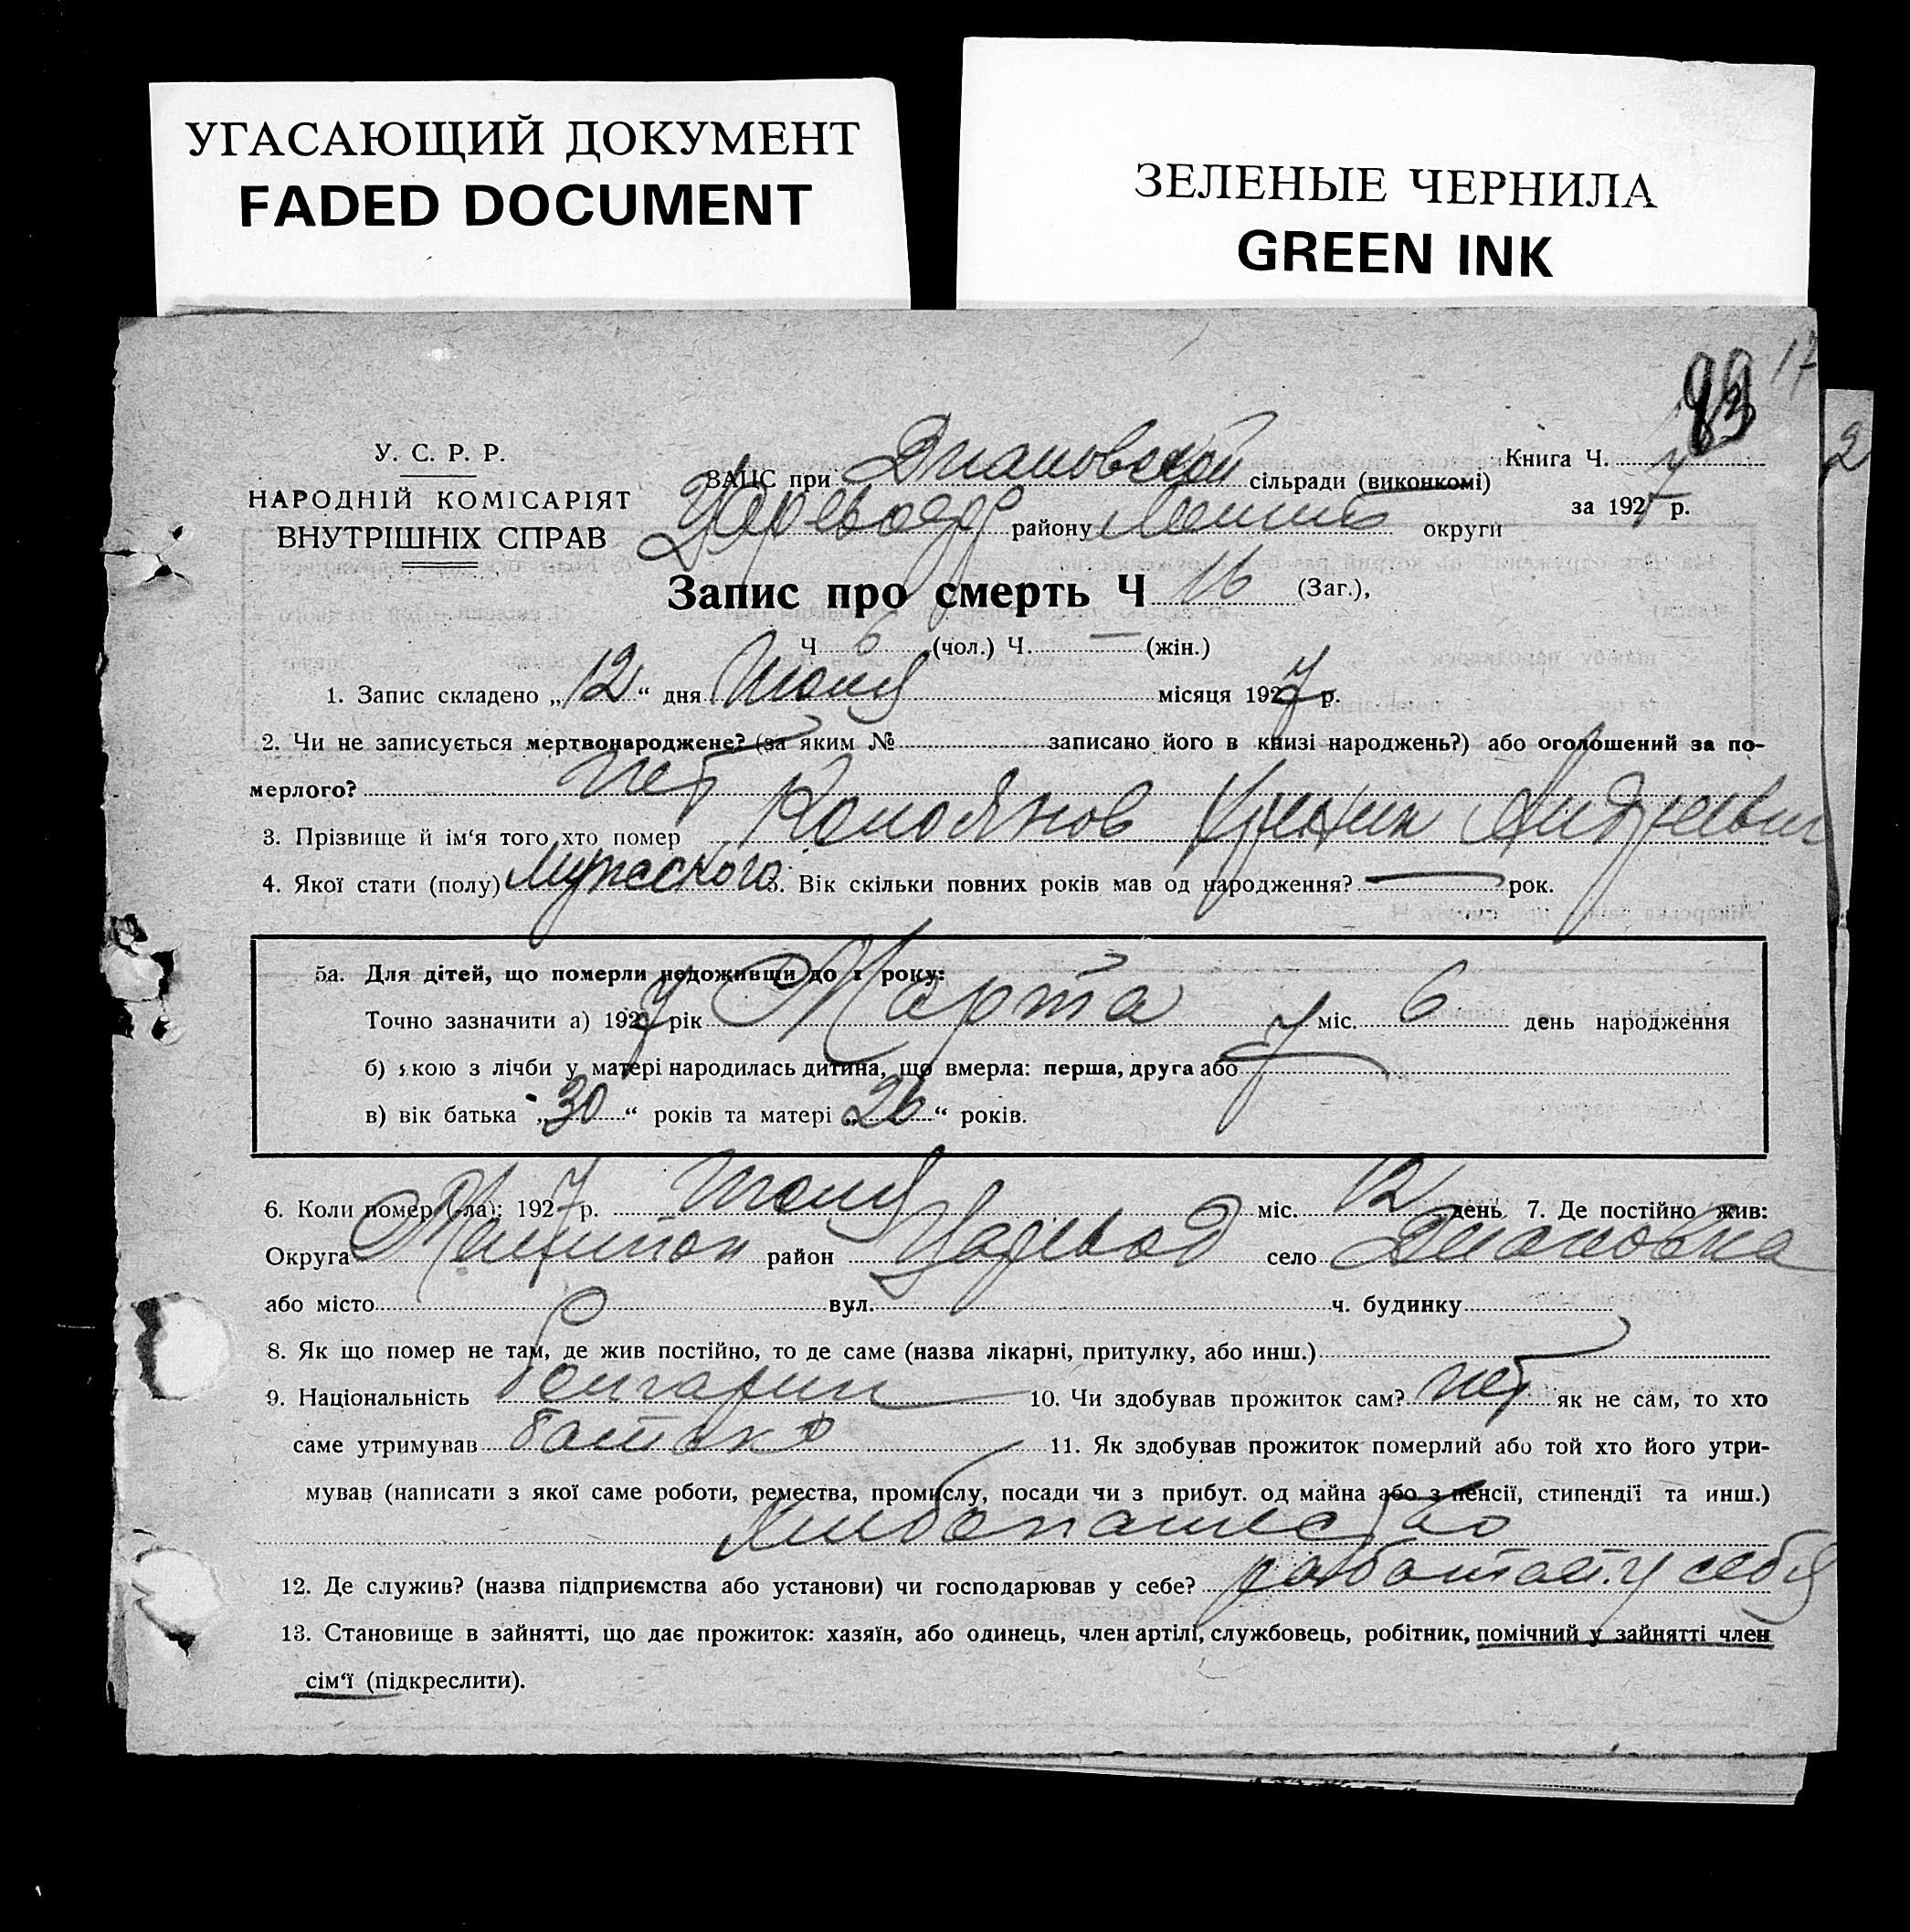 УГАСАЮЩИЙ ДОКУМЕНТ
FADED DOCUMENT
ЗЕЛЕНЫЕ ЧЕРНИЛА
GREEN INK
17
У. С. Р. Р.
НАРОДНІЙ КОМІСАРІЯТ
ВНУТРІШНІХ СПРАВ
ЗАЦС при Диановской сільради (виконкомі)
району округи
Книга Ч.
за 1927 р.
Запис про смерть Ч 16 (Заг.),
Ч 6 (чол.) Ч. — (жін.)
1. Запис складено „12“ дня місяця 1927 р.
2. Чи не записується мертвонароджене? (за яким № записано його в книзі народжень?) або оголошений за по-
мерлого? нет
3. Прізвище й ім‘я того хто помер Андреевич
4. Якої стати (полу) Мужского 5. Вік скільки повних років мав од народження? — рок.
5а. Для дітей, що померли недоживши до 1 року:
Точно зазначити а) 1927 рік Марта міс. 6 день народження
б) якою з лічби у матері народилась дитина, що вмерла: перша, друга або 7
в) вік батька „30“ років та матері „26“ років.
6. Коли помер (-ла): 1927 р. міс. 12 день 7. Де постійно жив:
Округа район село Диановка
або місто вул. ч. будинку
8. Як що помер не там, де жив постійно, то де саме (назва лікарні, притулку, або инш.)
9. Національність болгарин 10. Чи здобував прожиток сам? нет як не сам, то хто
саме утримував 11. Як здобував прожиток померлий або той хто його утри-
мував (написати з якої саме роботи, ремества, промислу, посади чи з прибут. од майна або з пенсії, стипендії та инш.)
Хлебопашество
12. Де служив? (назва підприємства або установи) чи господарював у себе? работает у себя
13. Становище в зайнятті, що дає прожиток: хазяїн, або одинець, член артілі, службовець, робітник, помічний у зайнятті член
сім‘ї (підкреслити).
2